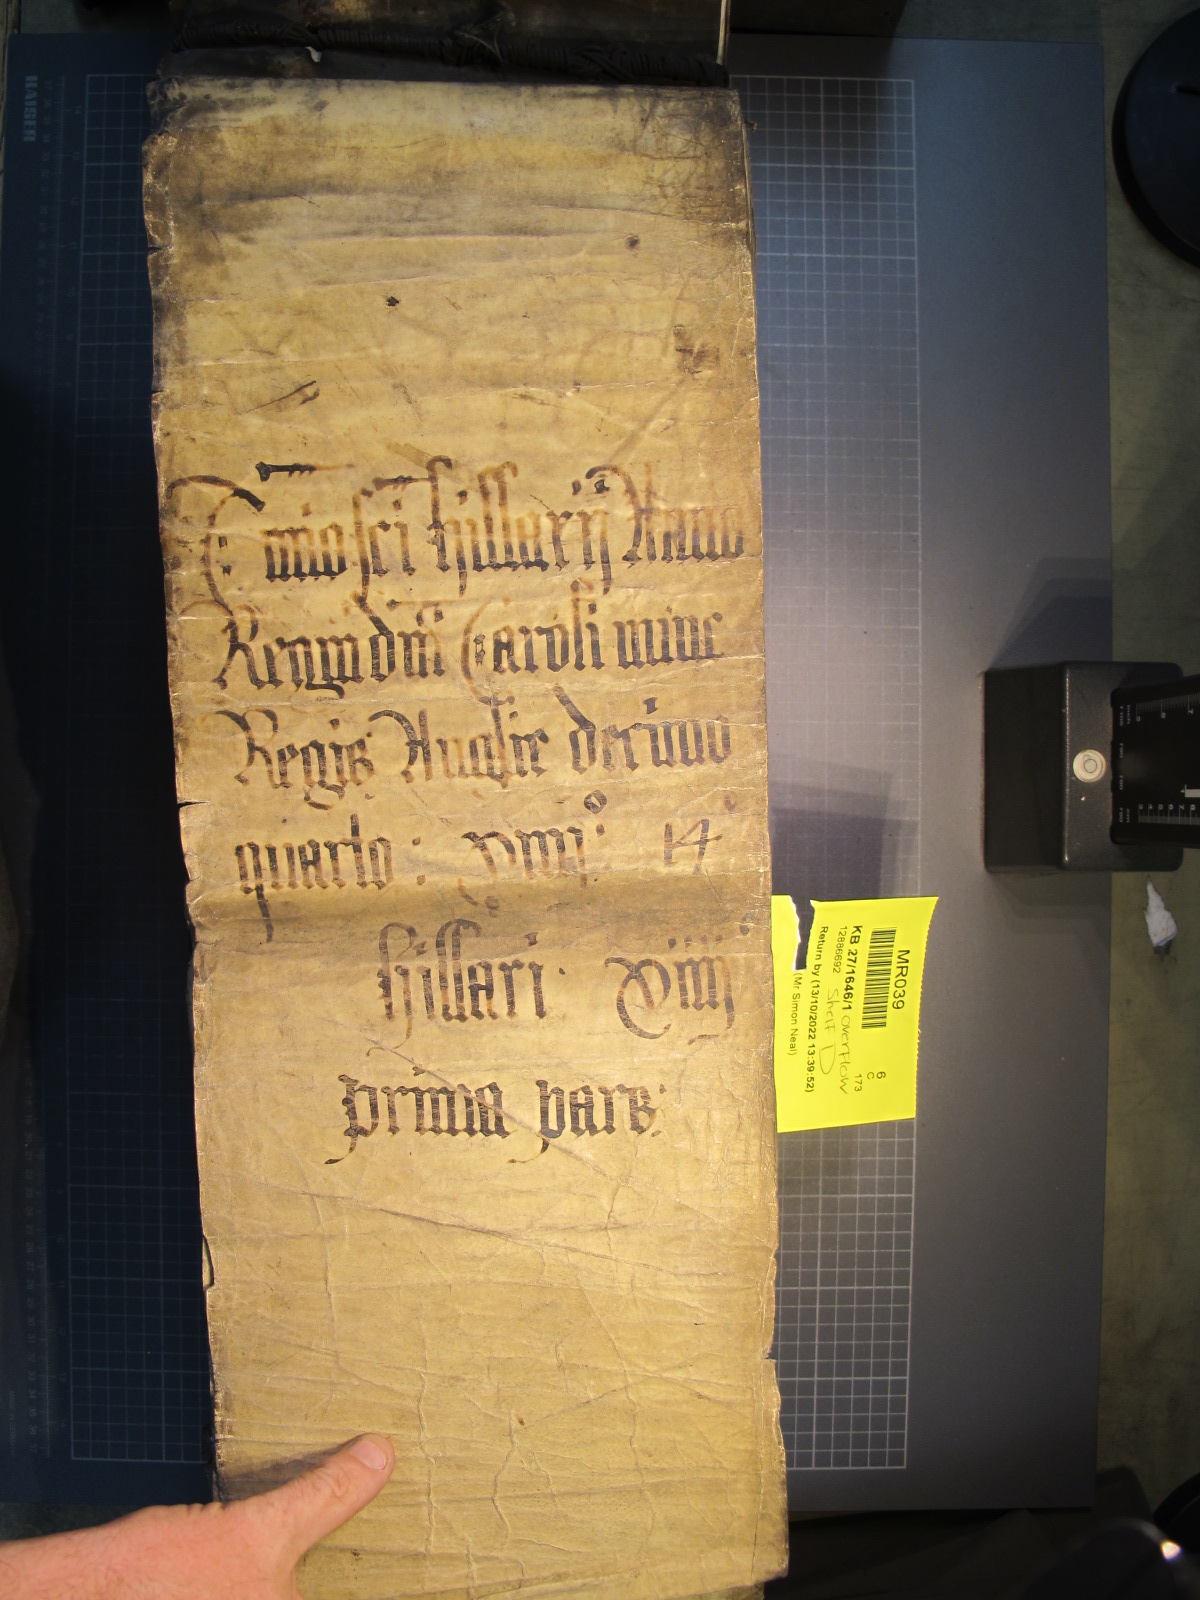 Termino sci hillarij Anno
Regni dni Caroli nunc
Regis Anglie decimo
quarto : xiiij° 14
hillari · xiiij°
prima pars:
MR039
KB 27/1646/1 overflow
12886692 Shelf D
Return by (13/10/2022 13:39:52)
(Mr Simon Neal)
6
C
173
KAISER